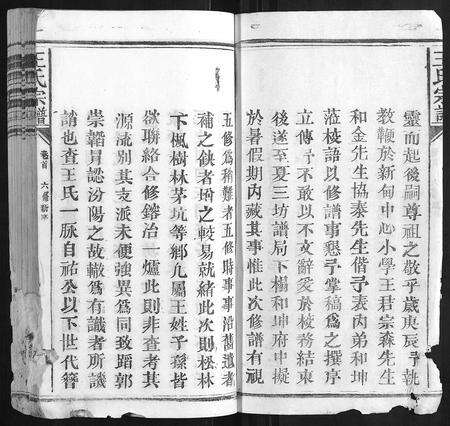 王氏宗譜
靈而起後嗣尊祖之敬乎歲庚辰予執
教鞭於新甸中心小學王君宗森先生
和金先生協泰先生偕予表丙弟和坤
蒞校語以修譜事懇予掌稿為之撰序
立傳予不敢以不文辭爰於校務結束
後遂至夏三坊譜局下榻和坤府中擬
於暑假期內藏其事惟此次修譜有視
五修為稍難者五修時事事沿舊遺者
補之缺者增之較易就緒此次則松林
下楓樹林茅坑等鄉凢屬王姓子孫皆
欲聯絡合修鎔治一爐此則非查考其
源流別其支派未便強異為同致蹈郭
崇韜冒認汾陽之故轍為有識者所譏
誚也查王氏一脉自祐公以下世代簪
王氏宗譜
卷首
六修新序